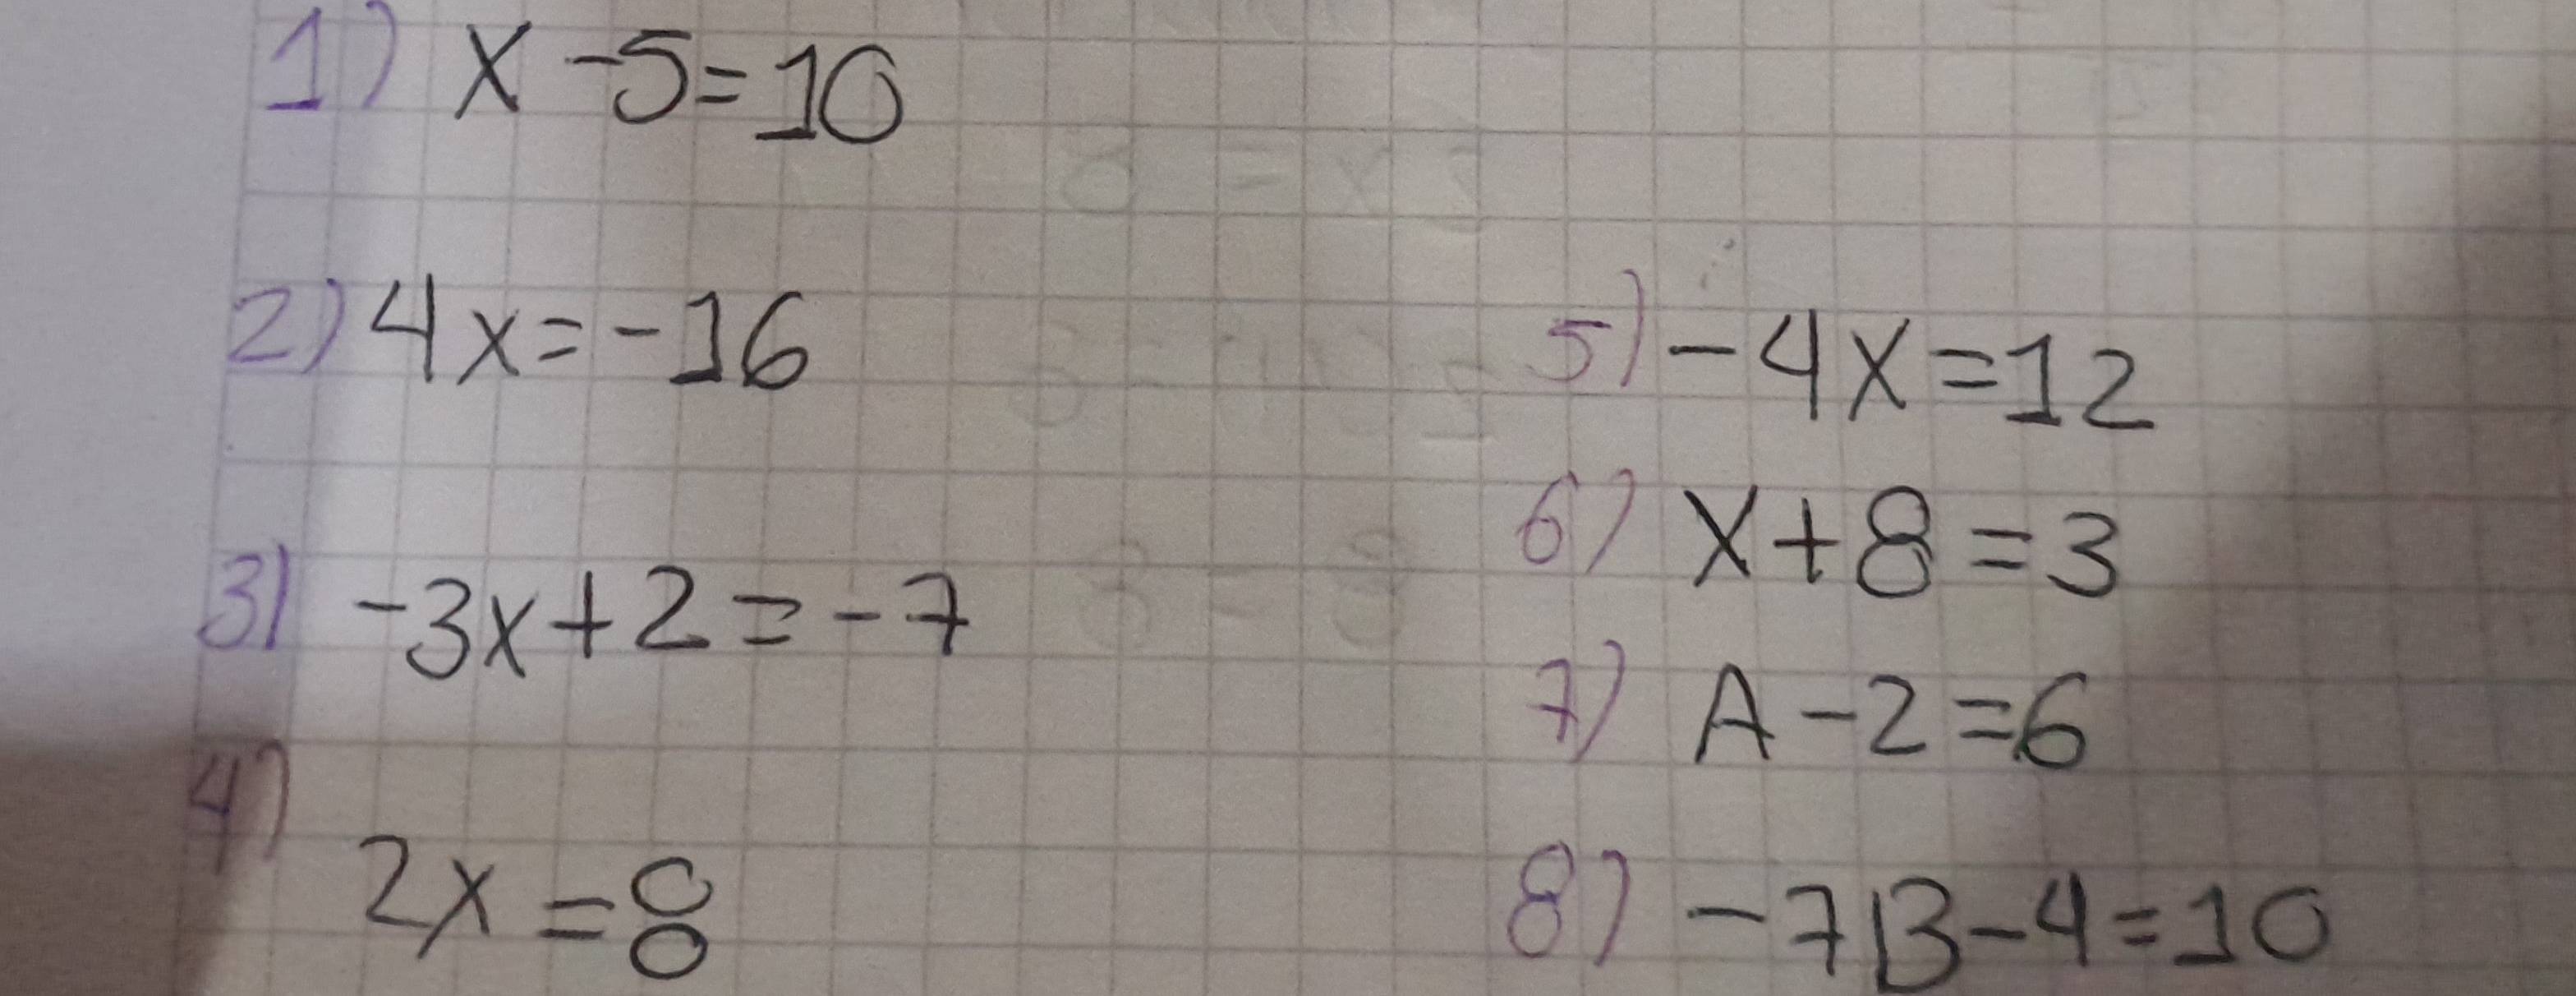 1) x-5=10
2) 4x=-16
3) -3x+2=-7
4) 2x=8
5) -4x=12
6) x+8=3
7) A-2=6
8) -7B-4=10